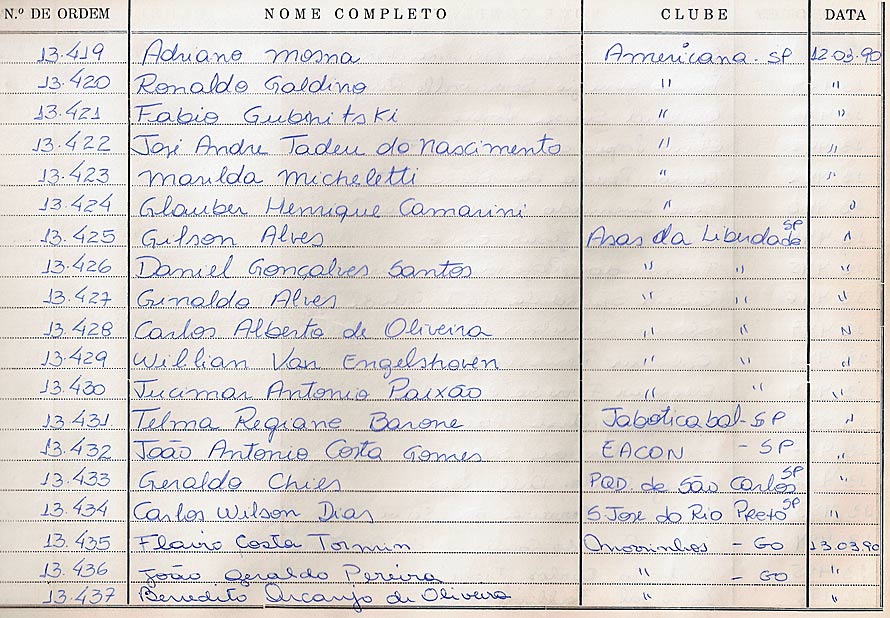 N.º DE ORDEM NOME COMPLETO CLUBE DATA
13.419 Adriano Mosna Americana - SP 12.03.90
13.420 Ronaldo Galdino " "
13.421 Fabio Gubnitski " "
13.422 José Andre Tadeu do Nascimento " "
13.423 Marilda Micheletti " "
13.424 Glauber Henrique Camarini " "
13.425 Gilson Alves Asas da Liberdade SP "
13.426 Daniel Gonçalves Santos " " "
13.427 Ginaldo Alves " " "
13.428 Carlos Alberto de Oliveira " " "
13.429 Willian Van Engelshoven " " "
13.430 Jucimar Antonio Paixão " " "
13.431 Telma Regiane Barone Jaboticabal - SP "
13.432 João Antonio Costa Gomes EACON - SP "
13.433 Geraldo Chies PQD. de São Carlos SP "
13.434 Carlos Wilson Dias S Jose do Rio Preto SP "
13.435 Flavio Costa Tormin Morrinhos - GO 13.03.90
13.436 João Geraldo Pereira " - GO "
13.437 Benedito Arcanjo de Oliveira " "